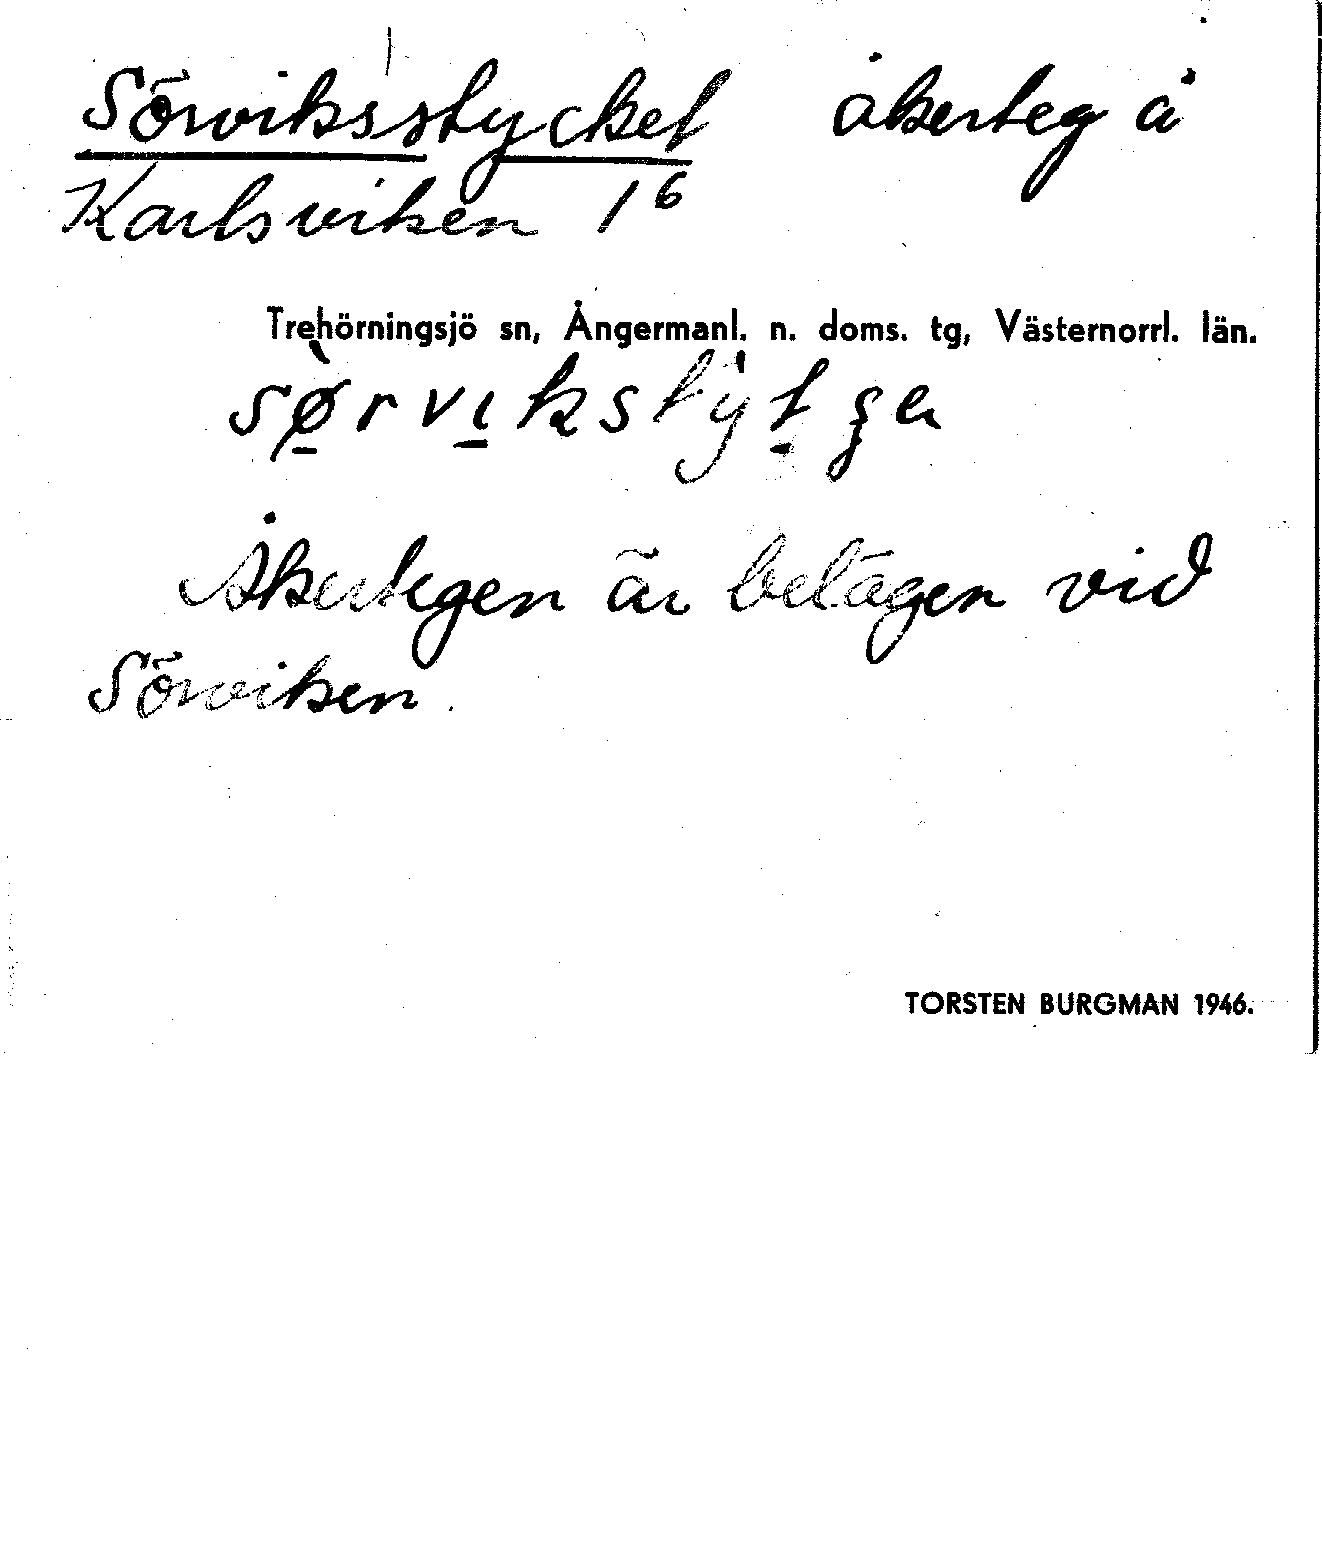 Sörviksstycket åkerteg å
Karlsviken 1⁶
Trehörningsjö sn, Ångermanl. n. doms. tg, Västernorrl. län.
Åkertegen är belägen vid
Sörviken.
TORSTEN BURGMAN 1946.